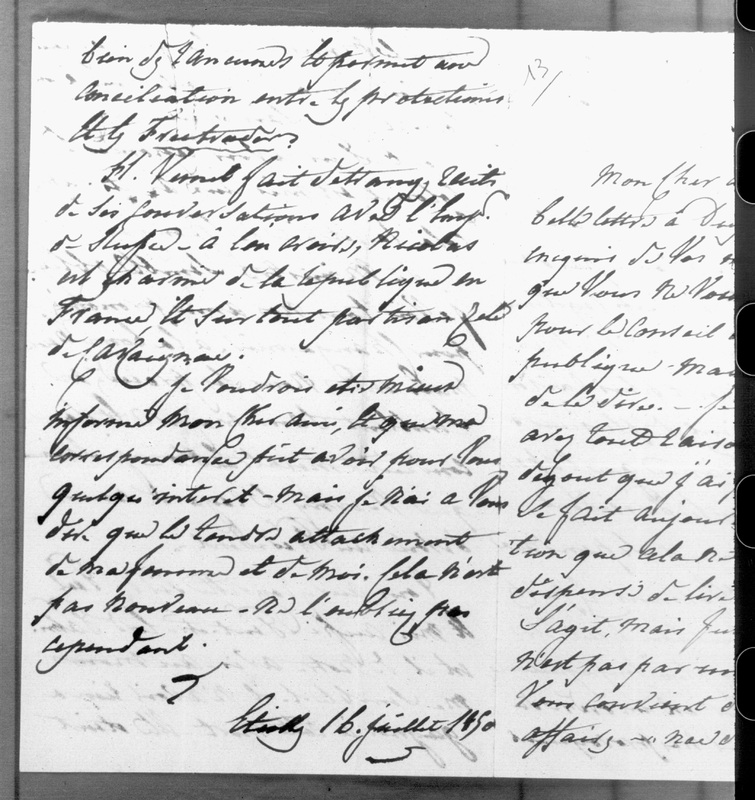 bien des rancunes et permet une
conciliation entre les protectionis
et les Freetraders
H. Vernet fait d'etranges récits
de ses conversations avec l'Emp.
de Russie - à l'en croire, Nicolas
est charmé de la republique en
France, et surtout partisan zélé
de Cavaignac.
Je voudrois etre mieux
informé mon cher ami, et que ma
correspondance put avoir pour vous
quelque interet - mais je n'ai a vous
dire que le tendre attachement
de ma femme et de moi. Cela n'est
pas nouveau - ne l'oubliez pas
cependant.
16. juillet 1850
13/
Mon cher
belle lettre à
de vos
que vous ne
pour le conseil
publique - mais
de le dire. - Je
avez toute raison
dégout que j'ai
le fait aujour
tion que a la
dispense de
s'agit, mais
n'est pas par un
vous convient
affaires -